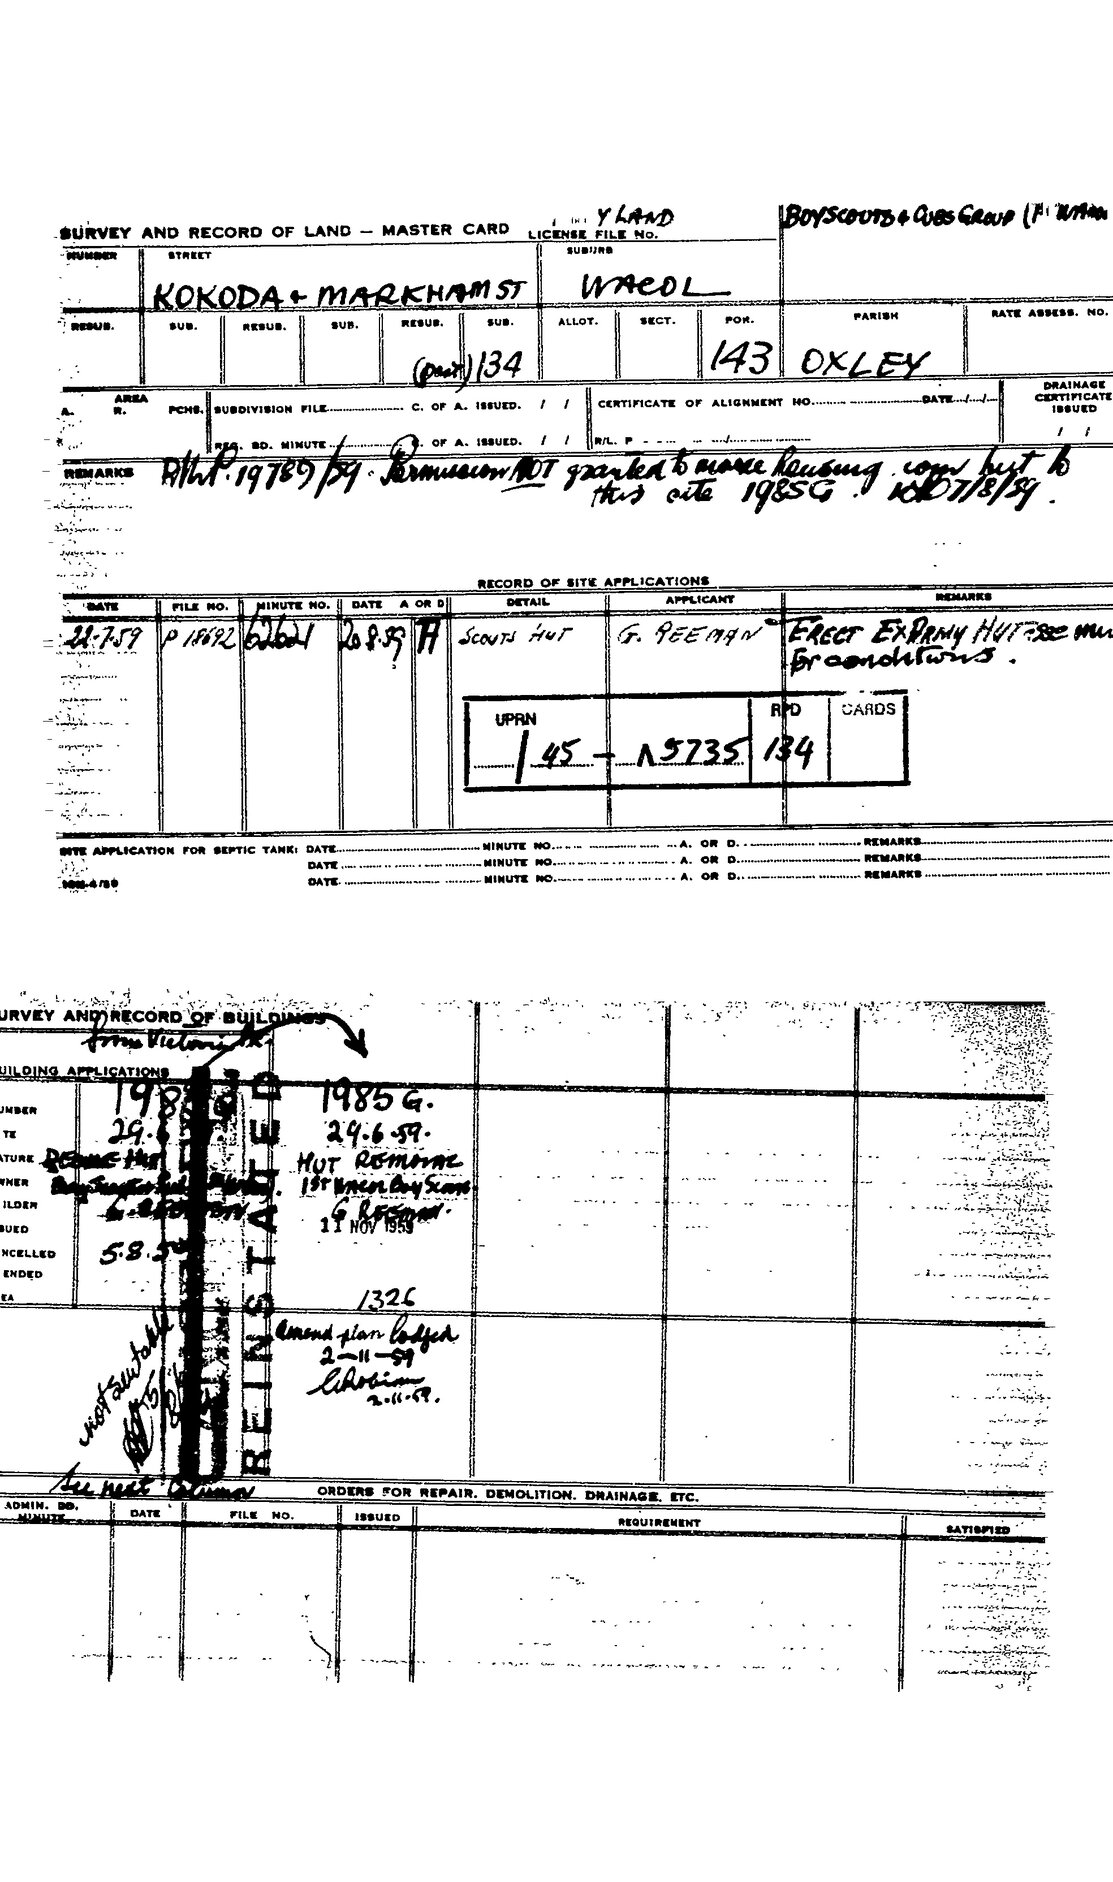 Y LAND
BOYSCOUTS & CUBS GROUP
SURVEY AND RECORD OF LAND — MASTER CARD LICENSE FILE NO.
NUMBER STREET SUBURB
KOKODA & MARKHAM ST WACOL
RESUB. SUB. RESUB. SUB. RESUB. SUB. ALLOT. SECT. POR. PARISH RATE ASSESS. NO.
(part) 134 143 OXLEY
AREA
A. R. PCHS. SUBDIVISION FILE C. OF A. ISSUED. / / CERTIFICATE OF ALIGNMENT NO. DATE / / DRAINAGE CERTIFICATE ISSUED
REG. BD. MINUTE C. OF A. ISSUED. / / R/L. P / /
REMARKS 19789/59. Permission NOT granted to move housing com hut to
this site 1985G. 7/8/59.
RECORD OF SITE APPLICATIONS
DATE FILE NO. MINUTE NO. DATE A OR D DETAIL APPLICANT REMARKS
22.7.59 P 18692 62621 20.8.59 A SCOUTS HUT G. REEMAN ERECT EX ARMY HUT - SEE
for conditions.
UPRN RPD CARDS
/ 45 - 134
SITE APPLICATION FOR SEPTIC TANK: DATE MINUTE NO. A. OR D. REMARKS
DATE MINUTE NO. A. OR D. REMARKS
DATE MINUTE NO. A. OR D. REMARKS
URVEY AND RECORD OF BUILDINGS
from Victoria Pk.
UILDING APPLICATIONS
UMBER 198 1985 G.
TE 29.6 29.6.59.
ATURE REMOVE HUT HUT REMOVAL
WNER 1ST WACOL BOY SCOUTS
ILDER G. REEMAN G REEMAN.
SUED 11 NOV 1959
NCELLED 5.8.59
ENDED
EA 1326
REINSTATED
amend plan lodged
2-11-59
2.11.59.
not suitable
See next Column
ORDERS FOR REPAIR. DEMOLITION. DRAINAGE. ETC.
ADMIN. BD. MINUTE DATE FILE NO. ISSUED REQUIREMENT SATISFIED